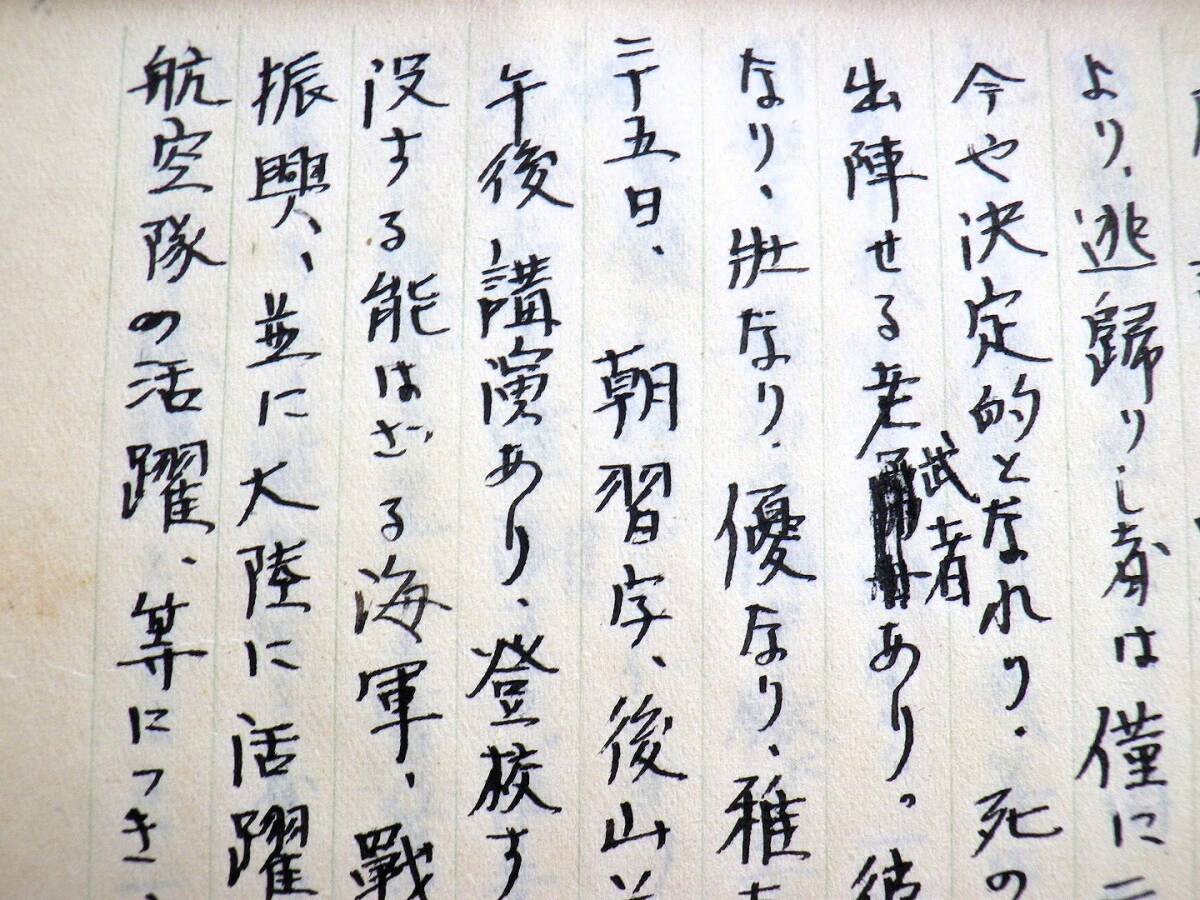 より、逃歸りし者は僅に二
今や決定的となれり。死の
出陣せる老武者あり。彼
なり、壯なり、優なり、雅な
二十五日、朝習字、後山
午後講演あり、登校す
没する能はざる海軍、戰
振興、並に大陸に活躍
航空隊の活躍、等につき、